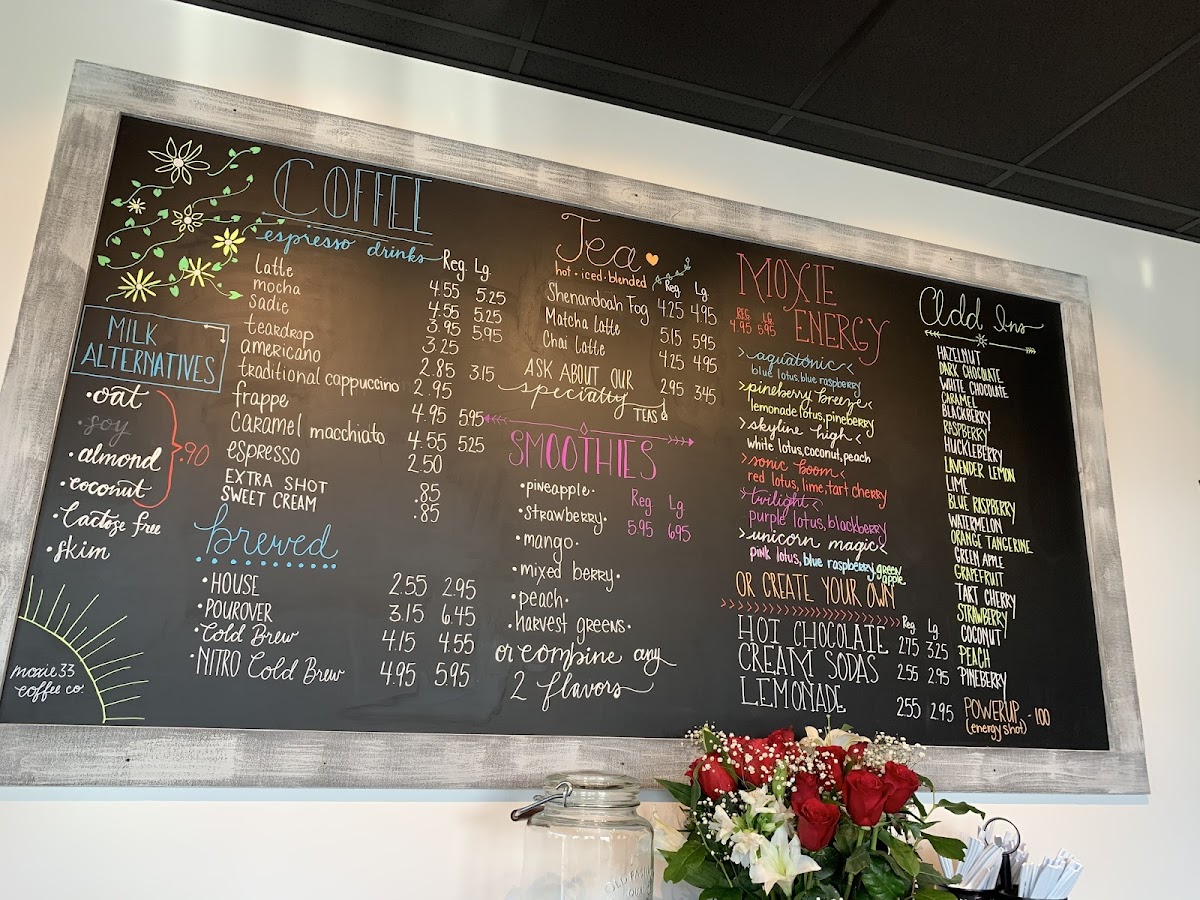 MILK
ALTERNATIVES
• oat
• soy
• almond
• coconut
.90
• Lactose free
• skim
moxie 33
coffee co.
COFFEE
espresso drinks
Reg. Lg.
latte 4.55 5.25
mocha 4.55 5.25
sadie 3.95 5.95
teardrop 3.25
americano 2.85 3.15
traditional cappuccino 2.95
frappe 4.95 5.95
caramel macchiato 4.55 525
espresso 2.50
EXTRA SHOT .85
SWEET CREAM .85
brewed
• HOUSE 2.55 2.95
• POUROVER 3.15 6.45
• Cold Brew 4.15 4.55
• NITRO Cold Brew 4.95 5.95
Tea
hot • iced • blended
Reg. Lg.
Shenandoah Fog 4.25 4.95
Matcha Latte 5.15 5.95
Chai Latte 4.25 4.95
ASK ABOUT OUR
specialty 2.95 3.45
TEAS
SMOOTHIES
Reg Lg
5.95 6.95
• pineapple •
• strawberry •
• mango •
• mixed berry •
• peach •
• harvest greens •
or combine any
2 flavors
MOXIE
ENERGY
REG LG
4.95 5.95
> aquatonic <
blue lotus, blue raspberry
> pineberry breeze <
lemonade lotus, pineberry
> skyline high <
white lotus, coconut, peach
> sonic boom <
red lotus, lime, tart cherry
> twilight <
purple lotus, blackberry
> unicorn magic <
pink lotus, blue raspberry, green apple
OR CREATE YOUR OWN
Reg Lg
HOT CHOCOLATE 2.75 3.25
CREAM SODAS 2.55 2.95
LEMONADE 2.55 2.95
Add Ins
HAZELNUT
DARK CHOCOLATE
WHITE CHOCOLATE
CARAMEL
BLACKBERRY
RASPBERRY
HUCKLEBERRY
LAVENDER LEMON
LIME
BLUE RASPBERRY
WATERMELON
ORANGE TANGERINE
GREEN APPLE
GRAPEFRUIT
TART CHERRY
STRAWBERRY
COCONUT
PEACH
PINEBERRY
POWERUP - 1.00
(energy shot)